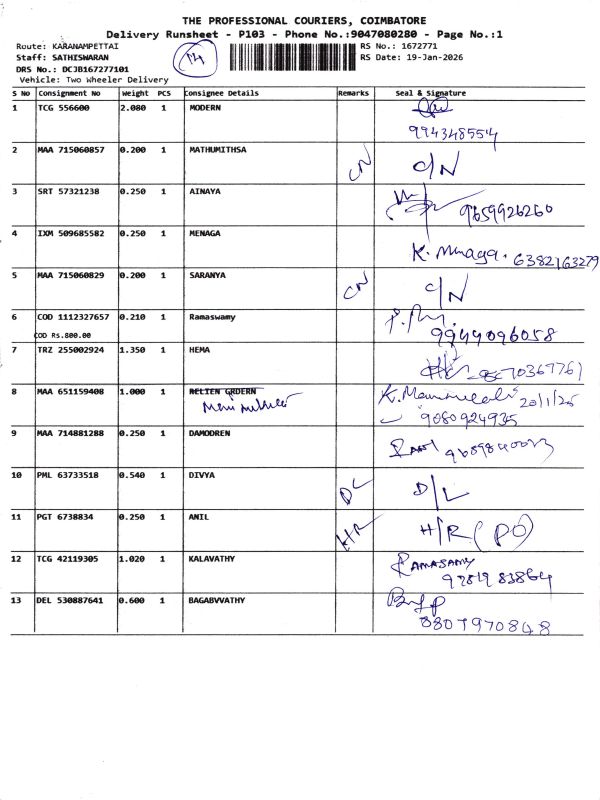 THE PROFESSIONAL COURIERS, COIMBATORE
Delivery Runsheet - P103 - Phone No.:9047080280 - Page No.:1
Route: KARANAMPETTAI
Staff: SATHISWARAN
DRS No.: DCJB167277101
Vehicle: Two Wheeler Delivery
14
RS No.: 1672771
RS Date: 19-Jan-2026
S No Consignment No Weight PCS Consignee Details Remarks Seal & Signature
1 TCG 556600 2.080 1 MODERN
9943485554
2 MAA 715060857 0.200 1 MATHUMITHSA CN C/N
3 SRT 57321238 0.250 1 AINAYA 9659926260
4 IXM 509685582 0.250 1 MENAGA K. Mnaga. 6382163279
5 MAA 715060829 0.200 1 SARANYA CN C/N
6 COD 1112327657 0.210 1 Ramaswamy 9944096058
COD Rs.800.00
7 TRZ 255002924 1.350 1 HEMA
8 MAA 651159408 1.000 1 RELIEN GRDERN 20/1/26
9080924935
9 MAA 714881288 0.250 1 DAMODREN
10 PML 63733518 0.540 1 DIVYA DL D/L
11 PGT 6738834 0.250 1 ANIL H/R H/R (PO)
12 TCG 42119305 1.020 1 KALAVATHY RAMASAMY
13 DEL 530887641 0.600 1 BAGABVVATHY
8807970848